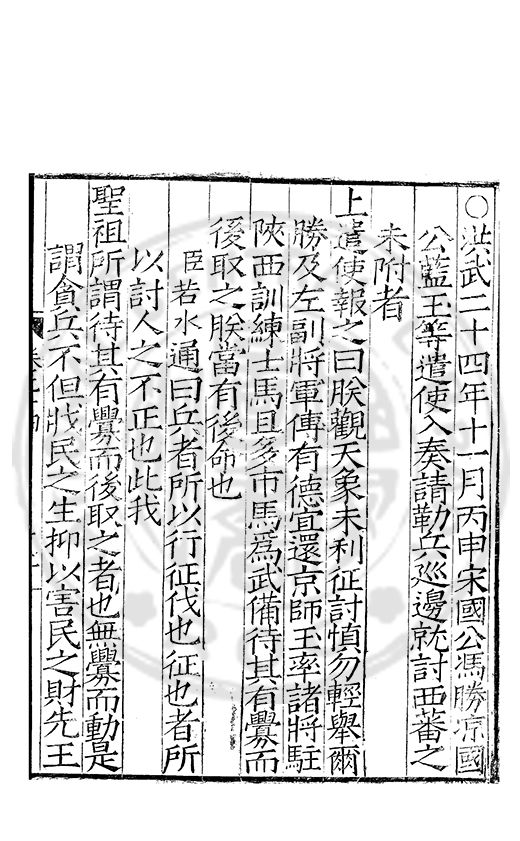 ○洪武二十四年十一月丙申宋國公馮勝凉國
公藍玉等遣使入奏請勒兵巡邊就討西蕃之
未附者
上遣使報之曰朕觀天象未利征討慎勿輕舉爾
勝及左副將軍傅有德宜還京師玉率諸將駐
陜西訓練士馬且多市馬爲武備待其有釁而
後取之朕當有後命也
臣若水通曰兵者所以行征伐也征也者所
以討人之不正也此我
聖祖所謂待其有釁而後取之者也無釁而動是
謂貪兵不但戕民之生抑以害民之財先王